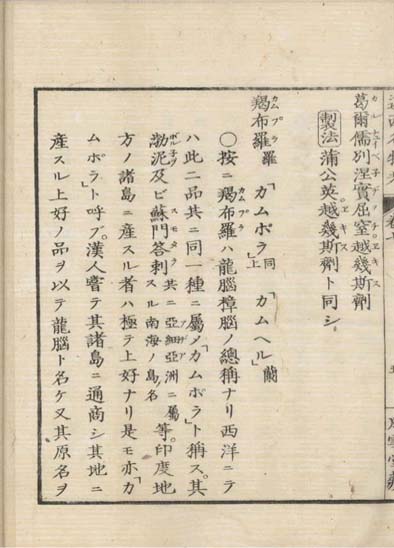 葛爾儒別涅實屈窒越幾斯劑
製法 蒲公英越幾斯劑ト同シ
羯布羅 羅「カムポラ」同上「カムヘル」蘭
○按ニ羯布羅ハ龍腦樟腦ノ總稱ナリ西洋ニテ
ハ此二品共ニ同一種ニ屬メ「カムポラ」ト稱ス其
渤泥及ビ蘇門答剌共ニ亞細亞洲ニ屬スル南海ノ島名等印度地
方ノ諸島ニ産スル者ハ極テ上好ナリ是モ亦「カ
ムポラ」ト呼ブ漢人嘗テ其諸島ニ通商シ其地ニ
産スル上好ノ品ヲ以テ龍腦ト名ケ又其原名ヲ